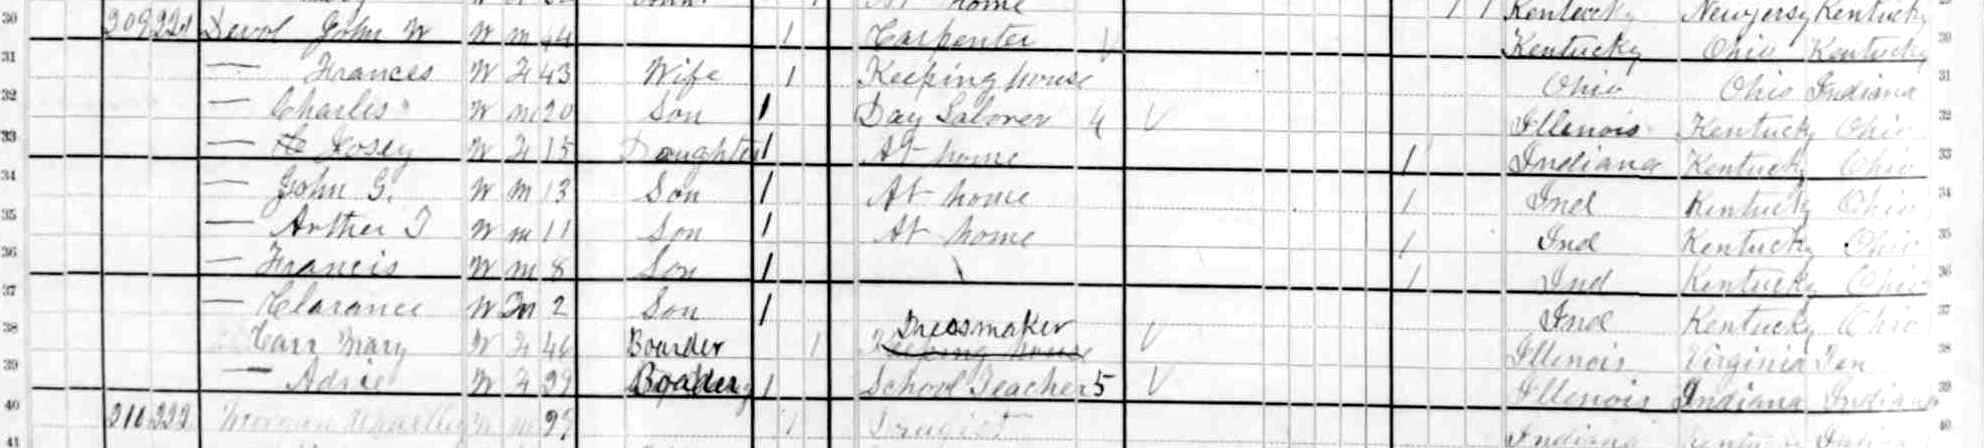 30 At home 1 1 Kentucky Newjersy Kentucky
209 221 Devol John W W m 44 1 Carpenter Kentucky Ohio Kentucky 30
31 — Frances W F 43 Wife 1 Keeping house Ohio Ohio Indiana 31
32 — Charles W m 20 Son 1 Day Laborer 4 Illenois Kentucky Ohio 32
33 — Josey W F 15 Daughter 1 At home 1 Indiana Kentucky Ohio 33
34 — John G. W m 13 Son 1 At home 1 Ind Kentucky Ohio 34
35 — Arther W m 11 Son 1 At home 1 Ind Kentucky Ohio 35
36 — Francis W m 8 Son 1 1 Ind Kentucky Ohio 36
37 — Clarance W M 2 Son 1 Ind Kentucky Ohio 37
Dressmaker
38 Carr Mary W F 46 Boarder 1 Keeping house Illinois Virginia Ten 38
39 — Adrie W F 29 Boarder 1 School Teacher 5 Illinois Indiana Indiana 39
40 210 222 Morgan W m 29 1 Drugist Indiana 40
41